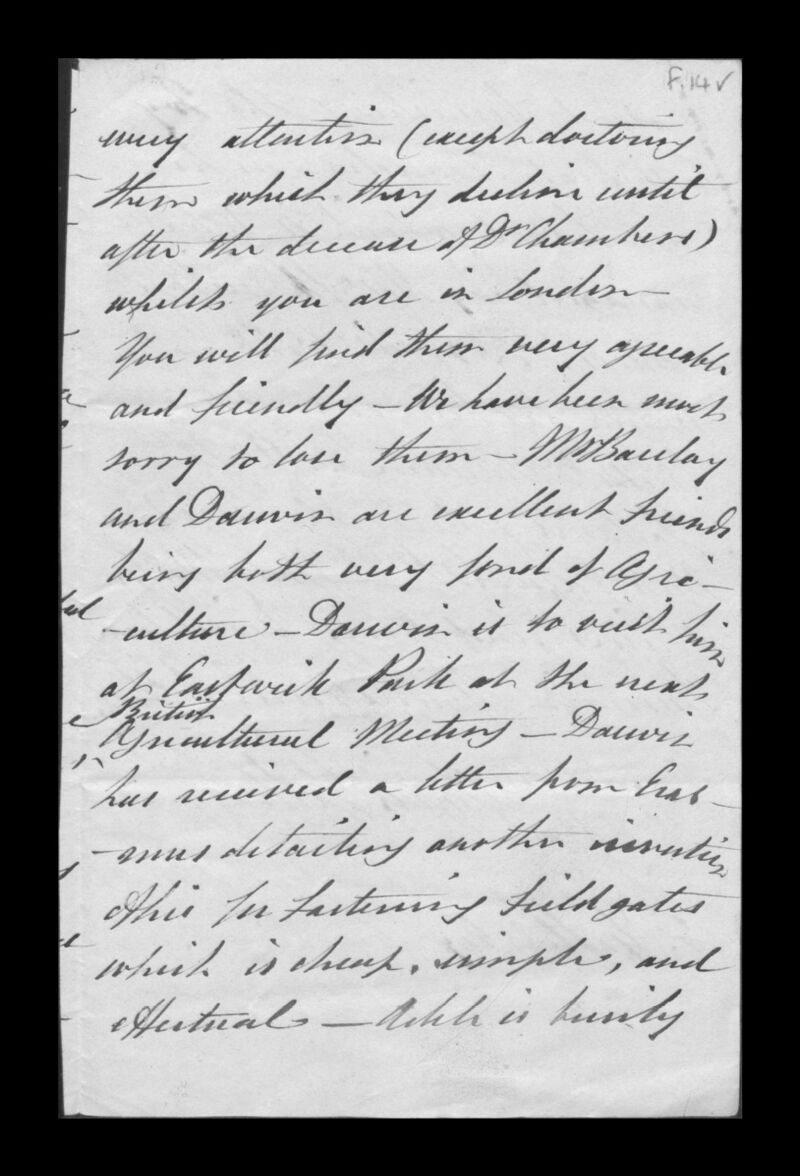 F.14v
every attention (except doctoring
them which they decline until
after the decease of Dr Chambers)
whilst you are in London —
You will find them very agreeable
and friendly — We have been most
sorry to lose them — Mr Barclay
and Darwin are excellent friends
being both very fond of Agri —
- culture — Darwin is to visit him
at Eastwick Park at the next
British
Agricultural Meeting — Darwin
has received a letter from Eras —
- mus detailing another invention
of his for fastening field gates
which is cheap, simple, and
effectual — is busily